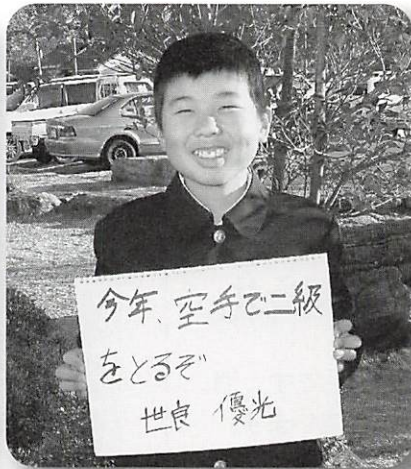 今年、空手で二級
をとるぞ
世良 優光